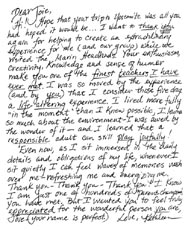 Dear Joie,
Hi. Hope that your trip to Yosemite was all you
had hoped it would be... I want to thank you
again for helping to create an astonishing
experience for me (and our group) while we
visited the Marin Headlands. Your enthusiasm,
creativity, knowledge and sense of humor
make you one of the finest teachers I have
ever met. I was so moved by the experience
(and by you) that I consider those five days
a life-altering experience. I lived more fully
"in the moment" than I knew possible, I learned
so much about the environment - I was awed by
the wonder of it - and, I learned that a
responsible adult can still play joyfully.
Even now, as I sit immersed in the daily
details and obligations of my life, whenever I
sit quietly I can feel waves of memories wash
over me - refreshing me and energizing me.
Thank you - Thank you - Thank you! I know
I am just one of hundreds of
you have met, But I wanted you to feel truly
appreciated for the wonderful person you are.
(and your name is perfect) Love, Kathleen